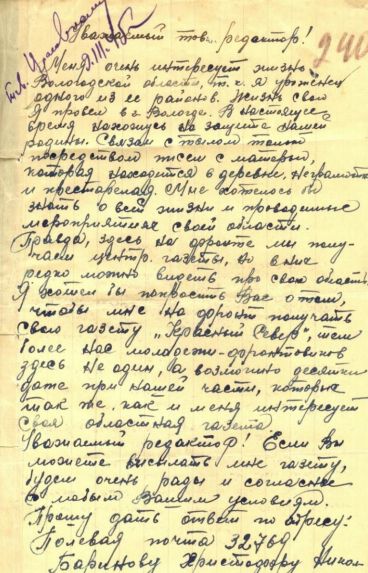 Тов. Цеговскому
3.III.45г.
Уважаемый тов. редактор!
240
Меня очень интересует жизнь
Вологодской области, т.к. я уроженец
одного из ее районов. Жизнь свою
я провел в г. Вологде. В настоящее
время нахожусь на защите нашей
родины. Связан с тылом только
посредством писем с матерью,
которая находится в деревне, неграмотна
и престарелая. Мне хотелось бы
знать о всей жизни и проводимых
мероприятиях своей области.
Правда, здесь на фронте мы полу-
чаем центр. газеты, но в них
редко можно видеть про свою область.
Я хотел бы попросить Вас о том,
чтобы мне на фронт получать
свою газету „Красный Север", тем
более нас молодежи-фронтовиков
здесь не один, а возможно десятки
даже при нашей части, которых
так же, как и меня интересует
своя областная газета.
Уважаемый редактор! Если Вы
можете высылать мне газету,
будем очень рады и согласные
с любым Вашим условиям.
Прошу дать ответ по адресу:
Полевая почта 32769
Баринову Христофору Никол-